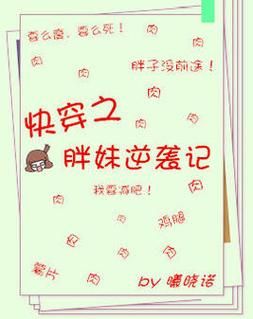 要么瘦，要么死！
肉
肉
胖子没前途！
肉
肉
肉
肉
肉
快穿之
肉
肉
胖妹逆袭记
我要减肥！
肉
肉
肉
鸡腿
肉
肉
肉
薯片
肉
肉
by 曦晓诺